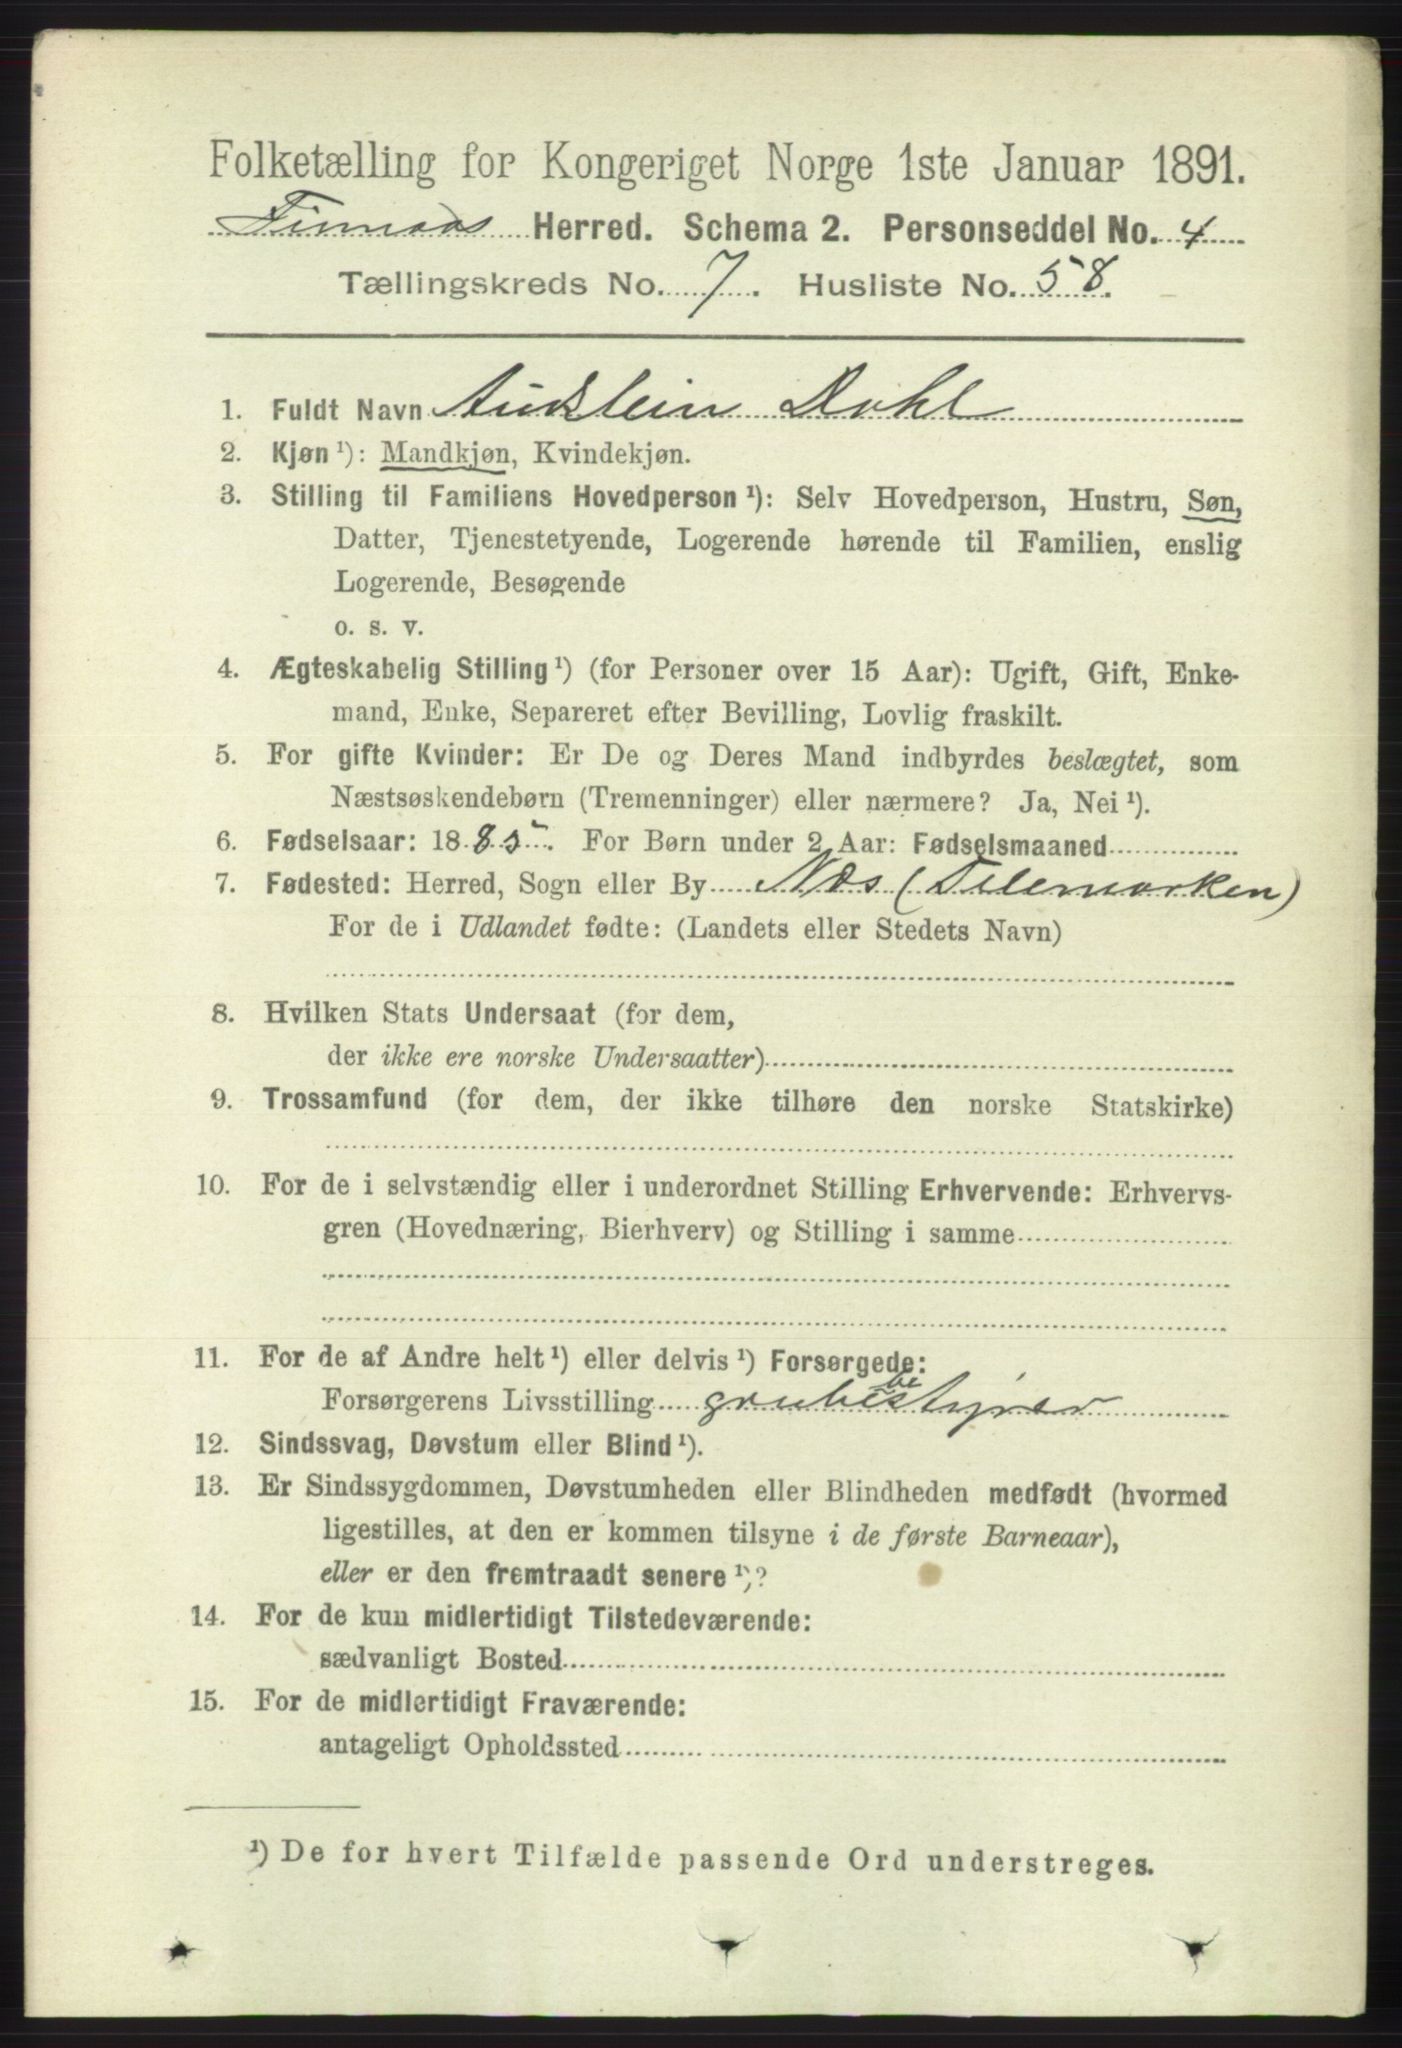 Folketælling for Kongeriget Norge 1ste Januar 1891.
Finnaas Herred. Schema 2. Personseddel No. 4
Tællingskreds No. 7. Husliste No. 58.
1. Fuldt Navn Dahl
2. Kjøn ¹): Mandkjøn, Kvindekjøn.
3. Stilling til Familiens Hovedperson ¹): Selv Hovedperson, Hustru, Søn,
Datter, Tjenestetyende, Logerende hørende til Familien, enslig
Logerende, Besøgende
o. s. v.
4. Ægteskabelig Stilling ¹) (for Personer over 15 Aar): Ugift, Gift, Enke-
mand, Enke, Separeret efter Bevilling, Lovlig fraskilt.
5. For gifte Kvinder: Er De og Deres Mand indbyrdes beslægtet, som
Næstsøskendebørn (Tremenninger) eller nærmere? Ja, Nei ¹).
6. Fødselsaar: 1885. For Børn under 2 Aar: Fødselsmaaned
7. Fødested: Herred, Sogn eller By Næs (Telemarken)
For de i Udlandet fødte: (Landets eller Stedets Navn)
8. Hvilken Stats Undersaat (for dem,
der ikke ere norske Undersaatter)
9. Trossamfund (for dem, der ikke tilhøre den norske Statskirke)
10. For de i selvstændig eller i underordnet Stilling Erhvervende: Erhvervs-
gren (Hovednæring, Bierhverv) og Stilling i samme
11. For de af Andre helt ¹) eller delvis ¹) Forsørgede:
Forsørgerens Livsstilling grubebestyrer
12. Sindssvag, Døvstum eller Blind ¹).
13. Er Sindssygdommen, Døvstumheden eller Blindheden medfødt (hvormed
ligestilles, at den er kommen tilsyne i de første Barneaar),
eller er den fremtraadt senere ¹)?
14. For de kun midlertidigt Tilstedeværende:
sædvanligt Bosted
15. For de midlertidigt Fraværende:
antageligt Opholdssted
¹) De for hvert Tilfælde passende Ord understreges.